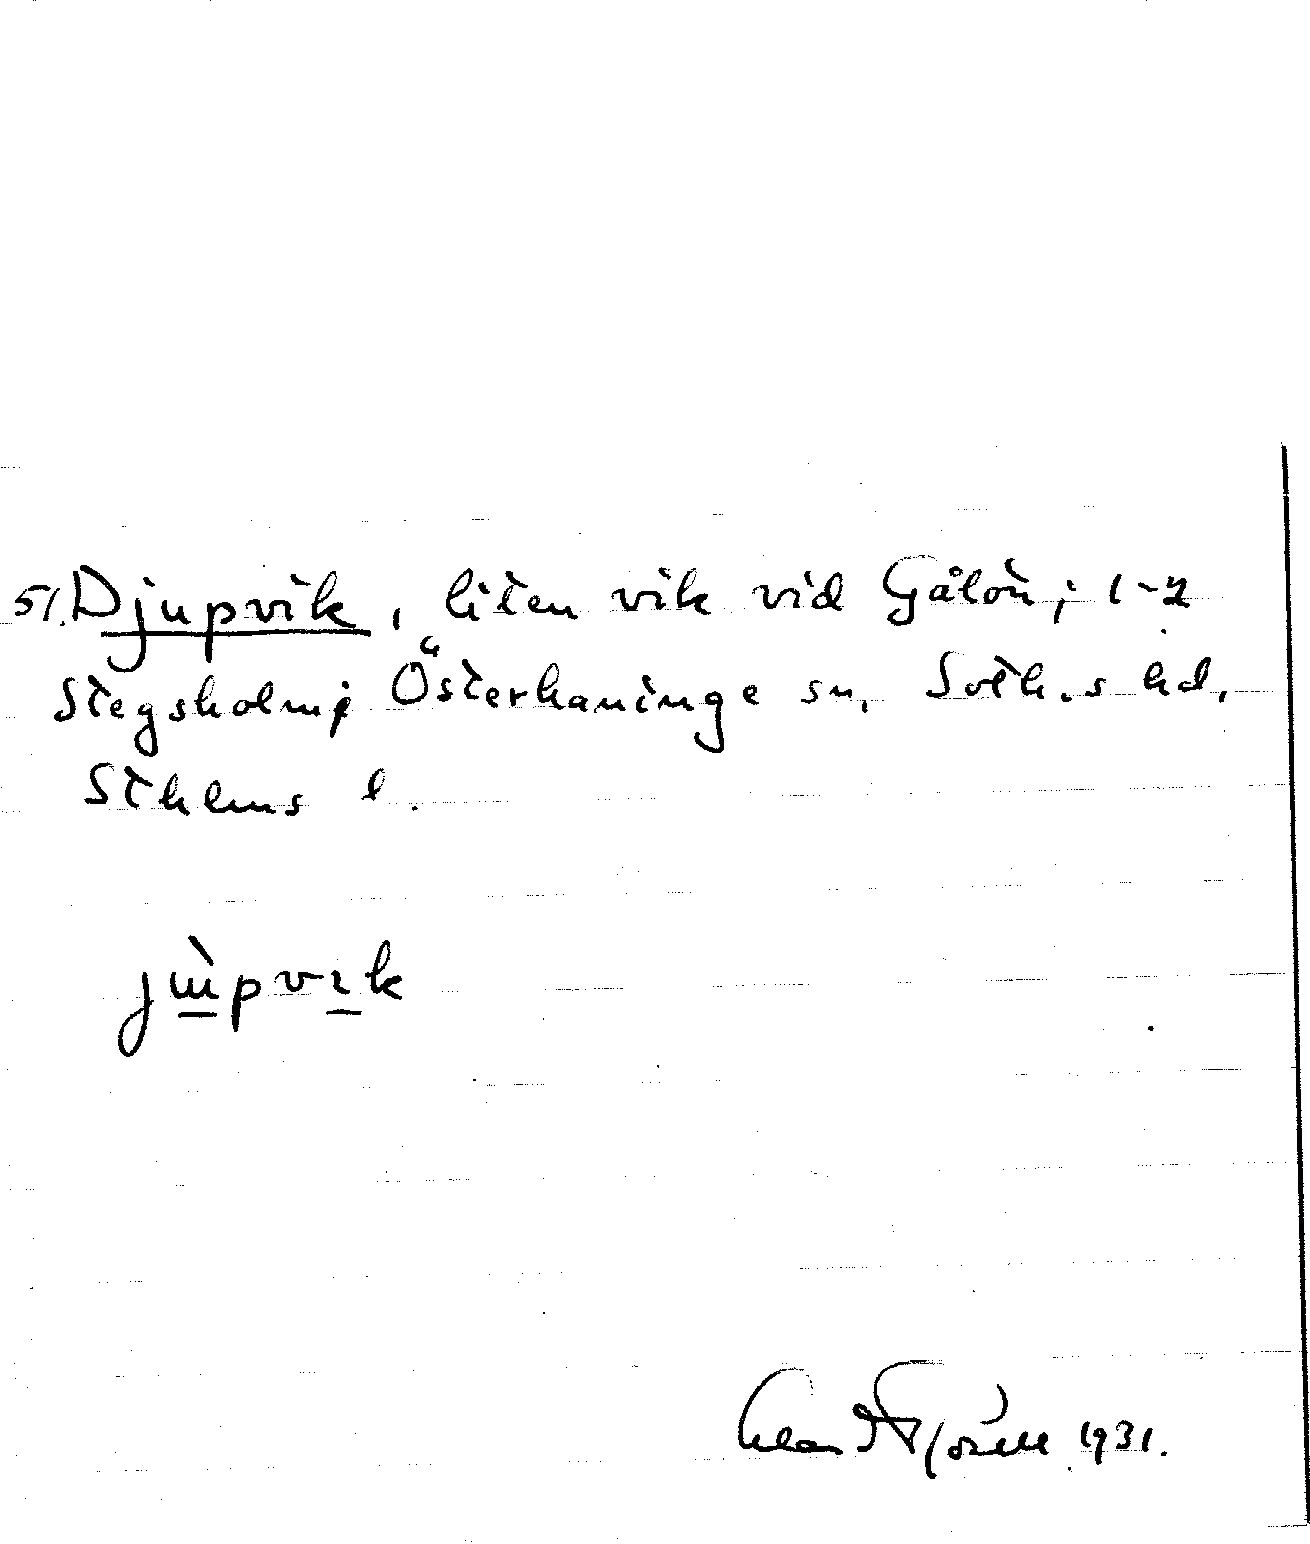 51. Djupvik, liten vik vid Gålön; 1-2
Stegsholm; Österhaninge sn, Soth.s hd,
Sthlms l.
jɯ̀pvɪk
1931.